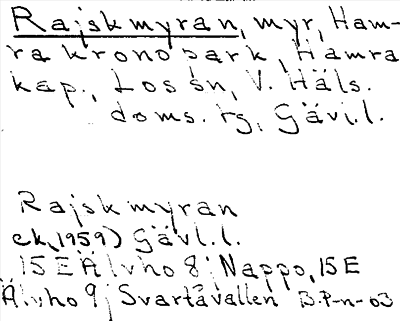 Rajskmyran, myr, Ham-
ra kronopark, Hamra
kap., Los sn, V. Häls.
doms. tg, Gävl.l.
Rajskmyran
ek.(1959) Gävl.l.
15 E Älvho 8; Nappo, 15 E
Älvho 9; Svartåvallen B.P-n-03